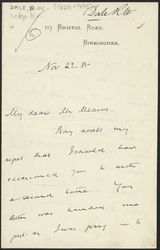 DALE, R.W.
Dale R.W.
115 BRISTOL ROAD,
BIRMINGHAM.
Nov 22. 
My dear Mr. Means,
Pray accept my
regret that I should have
occasioned you to write
a second time. Your
letter was handed me
just as I was going